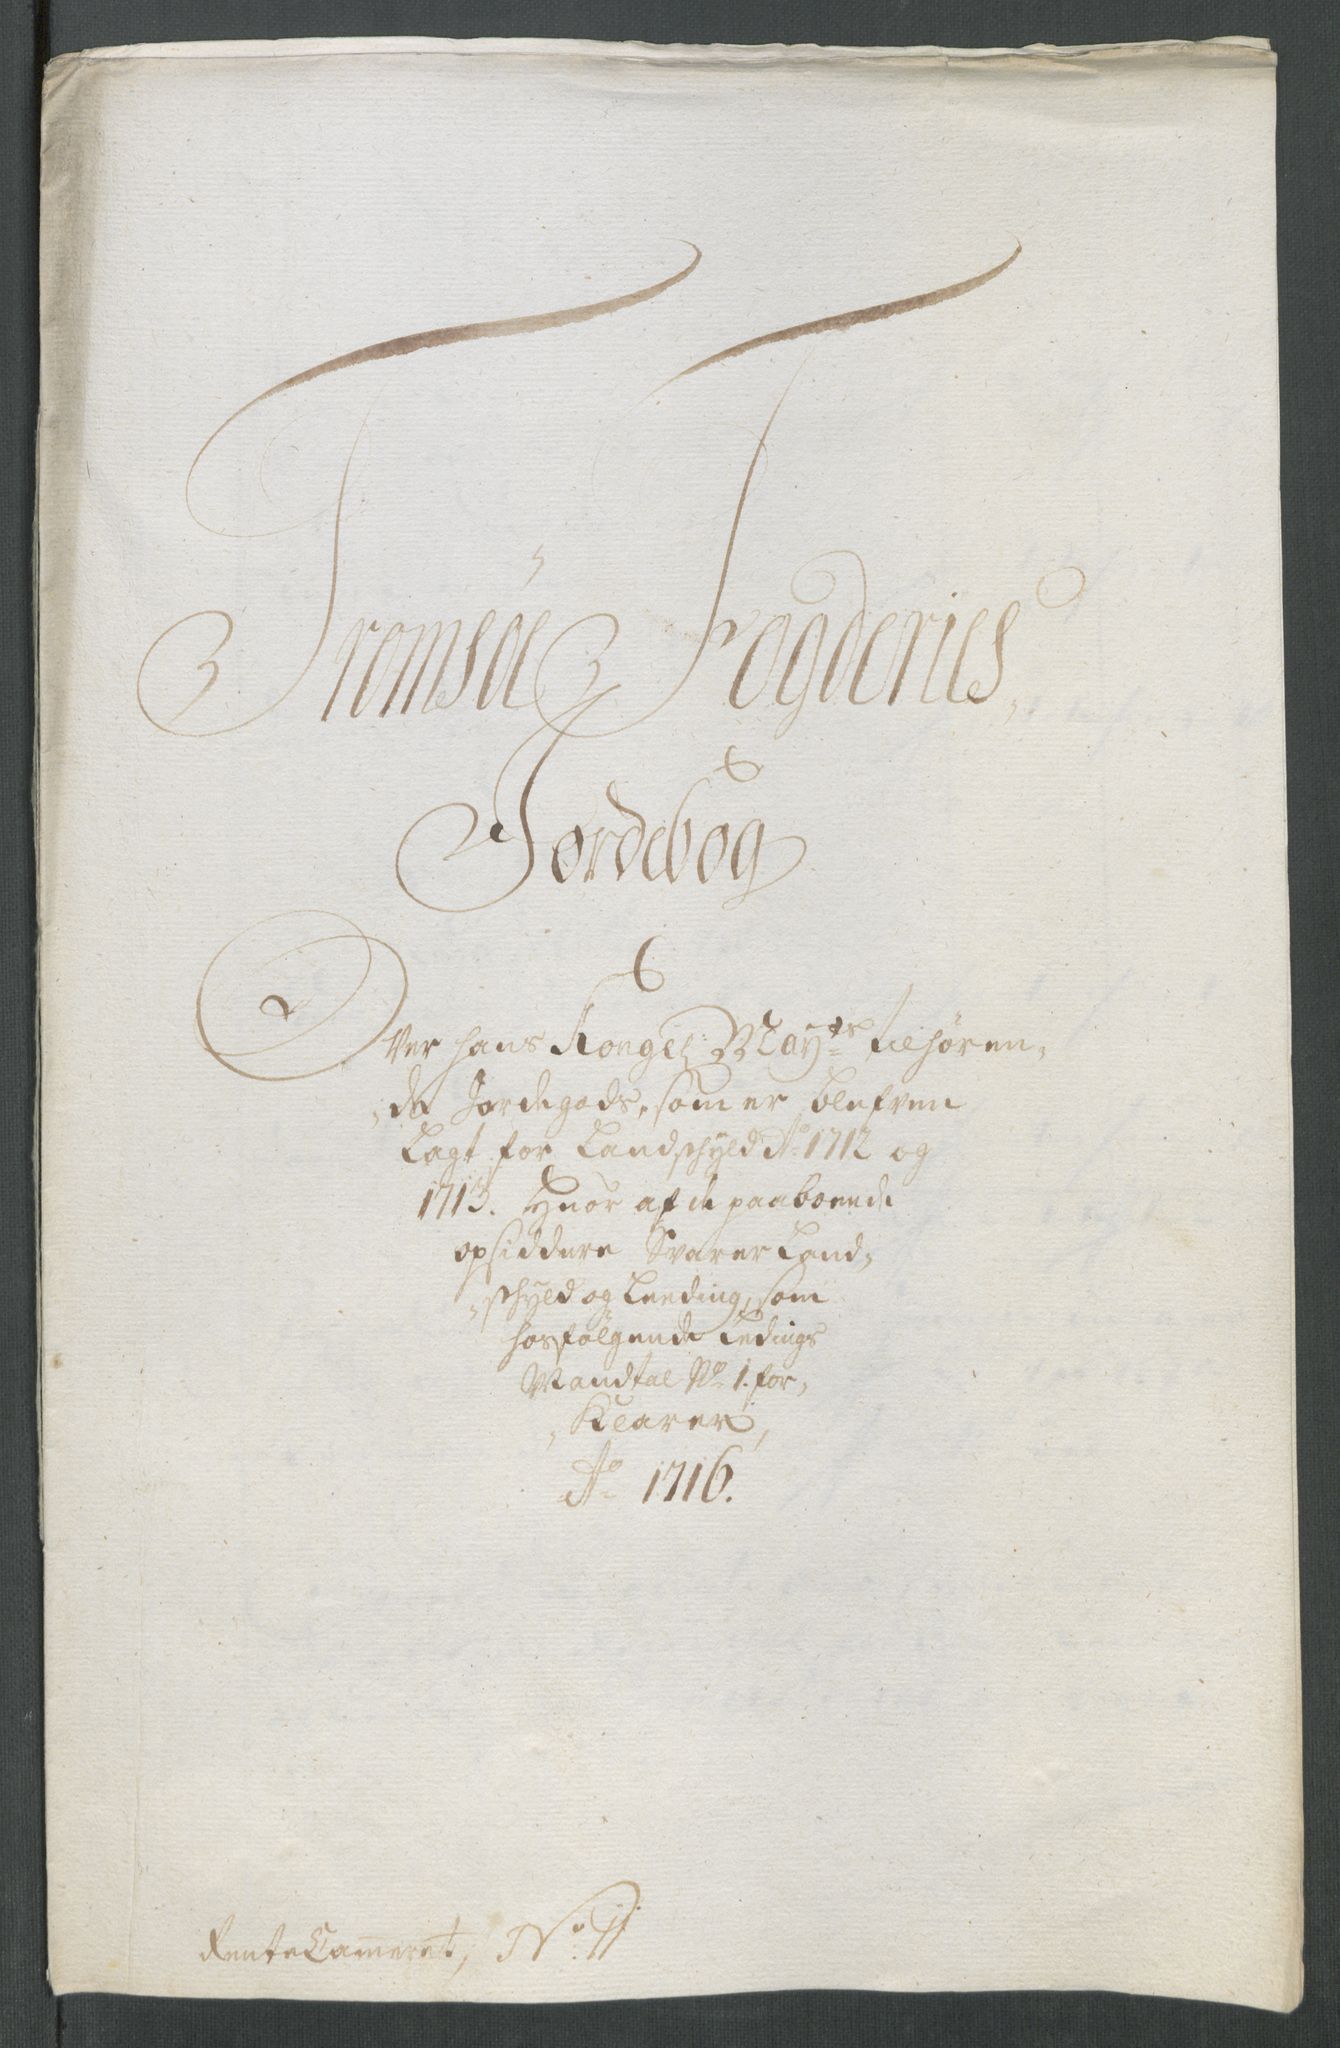 Tromsöe Fogderies
Jordebog
Over hans Kongel: May:ts tilhøren,
de Jordegods, som er blefven
Lagt for Landschyld A:o 1712 og
1713. Hvor af de paaboende
opsiddere Svarer Land,
schyld og Leeding, som
hosfølgende Ledings
Mandtal N:o 1. for,
Klarer,
A:o 1716.
RenteCammeret, N:o 11